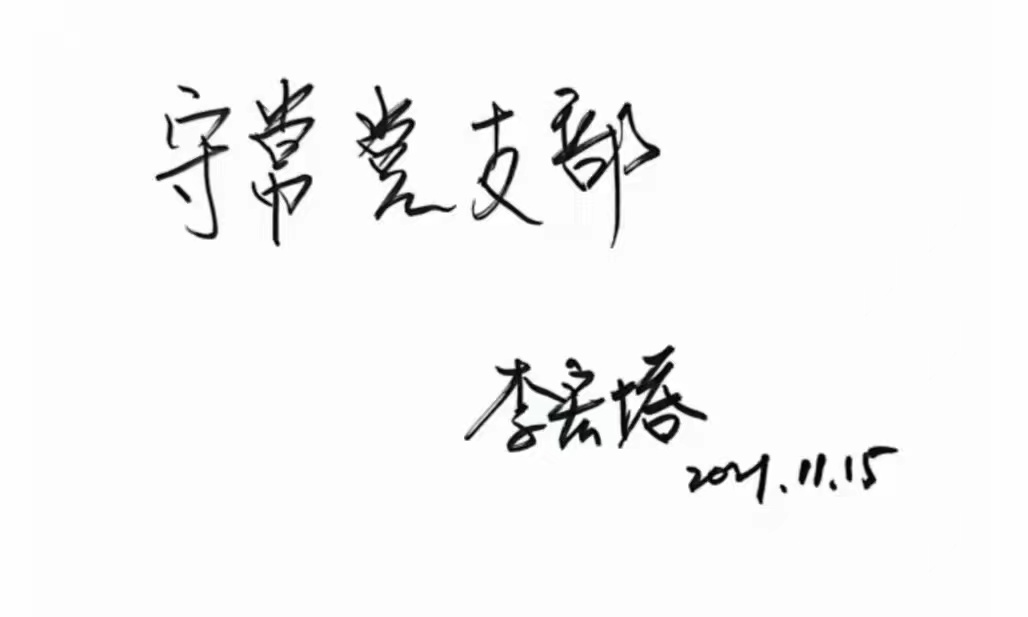 守常党支部
李宏塔
2021.11.15